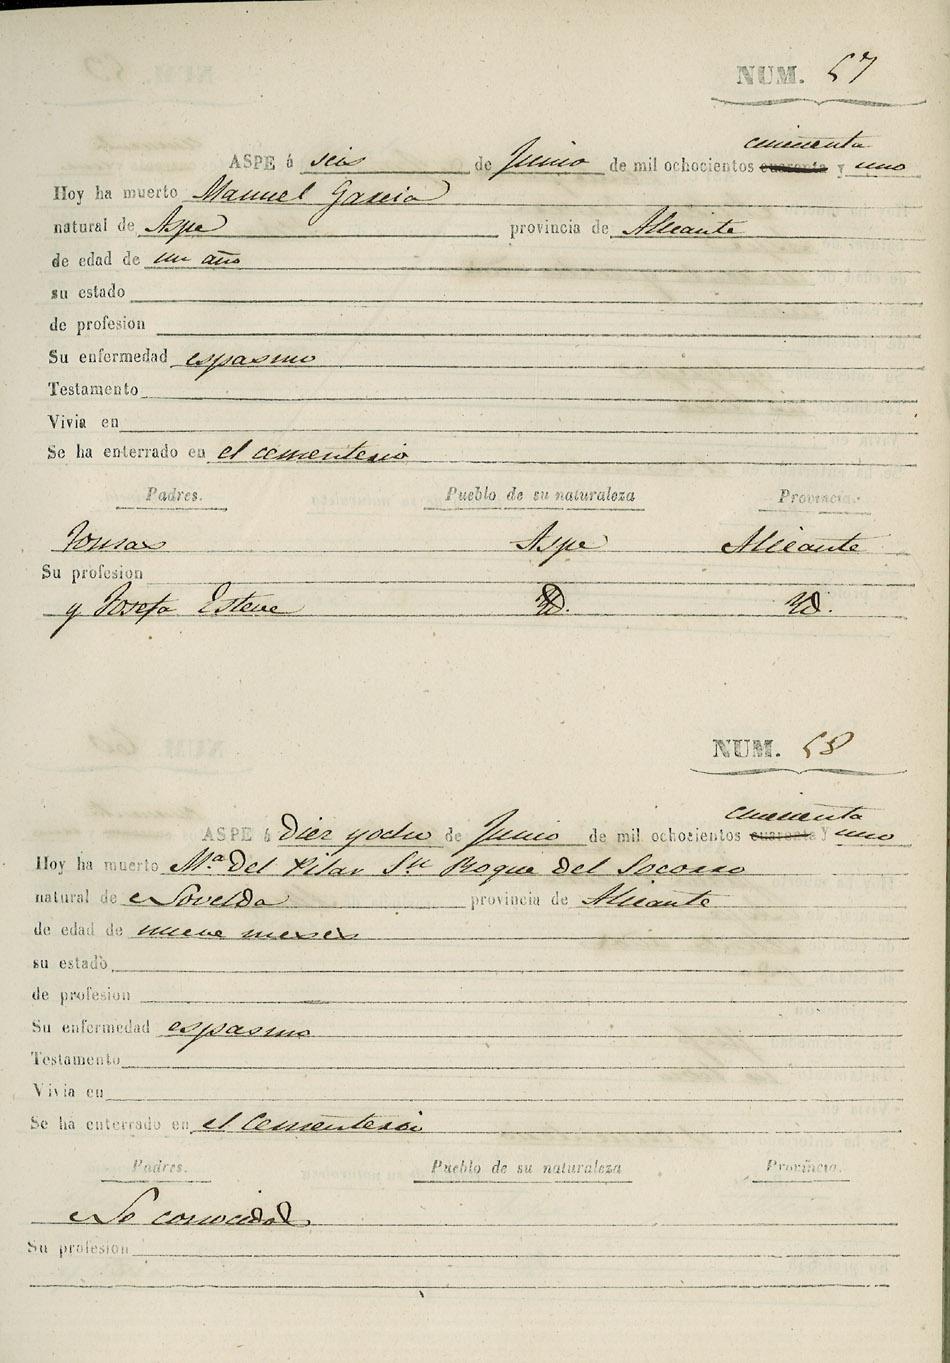 NUM. 57
cincuenta
ASPE á seis de Junio de mil ochocientos cuarenta y uno
Hoy ha muerto Manuel Garcia
natural de Aspe provincia de Alicante
de edad de un año
su estado
de profesion
Su enfermedad espasmo
Testamento
Vivia en
Se ha enterrado en el cementerio
Padres. Pueblo de su naturaleza Provincia.
Tomas Aspe Alicante
Su profesion
y Josefa Esteve Yd. Yd.
NUM. 58
cincuenta
ASPE á Diez y ocho de Junio de mil ochocientos cuarenta y uno
Hoy ha muerto Mª del Pilar Sn Roque del Socorro
natural de Novelda provincia de Alicante
de edad de nueve meses
su estado
de profesion
Su enfermedad espasmo
Testamento
Vivia en
Se ha enterrado en el Cementerio
Padres. Pueblo de su naturaleza Provincia.
No conocidos
Su profesion